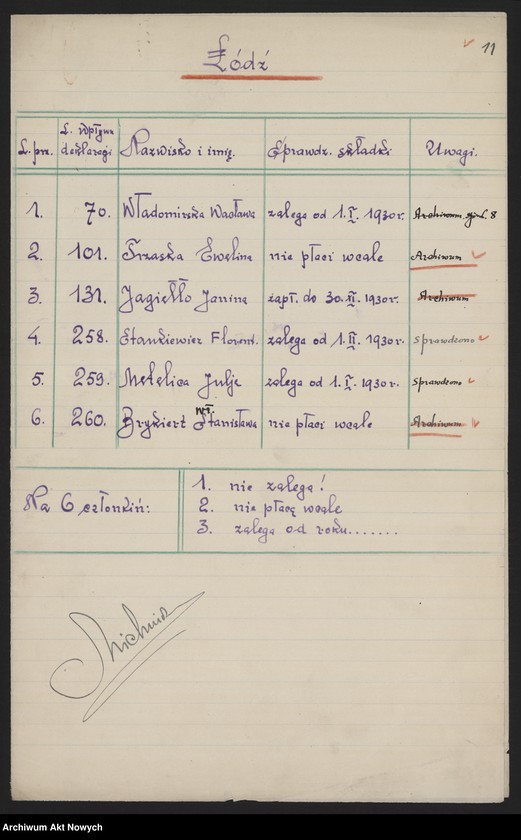 11
Łódź
L. prz. L. wpływu deklaracji Nazwisko i imię. Sprawdz. składki Uwagi.
1. 70. Władomirska Wacława zalega od 1.I. 1930 r. Archiwum 8
2. 101. Trzaska Ewelina nie płaci wcale Archiwum
3. 131. Jagiełło Janina zapł. do 30.VI. 1930 r. Archiwum
4. 258. Stankiewicz Florent. zalega od 1.II. 1930 r. sprawdzono
5. 259. Metelica Julja zalega od 1.I. 1930 r. sprawdzono
6. 260. Brykiert Stanisława nie płaci wcale Archiwum
Na 6 członkiń:
1. nie zalega!
2. nie płacą wcale
3. zalega od roku.......
Archiwum Akt Nowych